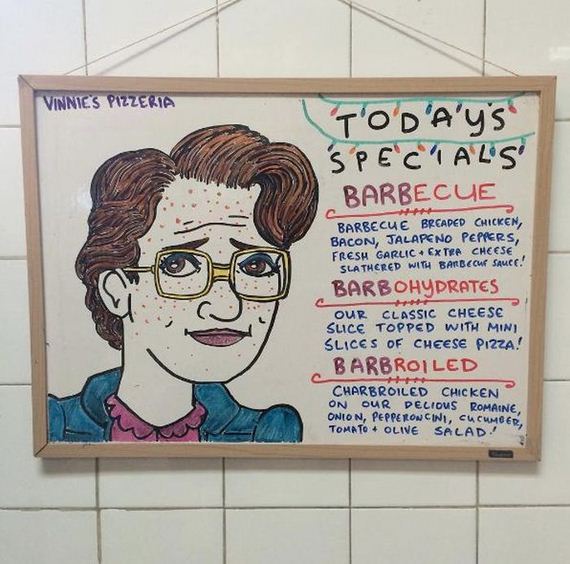 VINNIE'S PIZZERIA
TODAY'S
SPECIALS
BARBECUE
BARBECUE BREADED CHICKEN,
BACON, JALAPENO PEPPERS,
FRESH GARLIC + EXTRA CHEESE
SLATHERED WITH BARBECUE SAUCE!
BARBOHYDRATES
OUR CLASSIC CHEESE
SLICE TOPPED WITH MINI
SLICES OF CHEESE PIZZA!
BARBROILED
CHARBROILED CHICKEN
ON OUR DELIOUS ROMAINE,
ONION, PEPPERONCINI, CUCUMBER,
TOMATO + OLIVE SALAD!